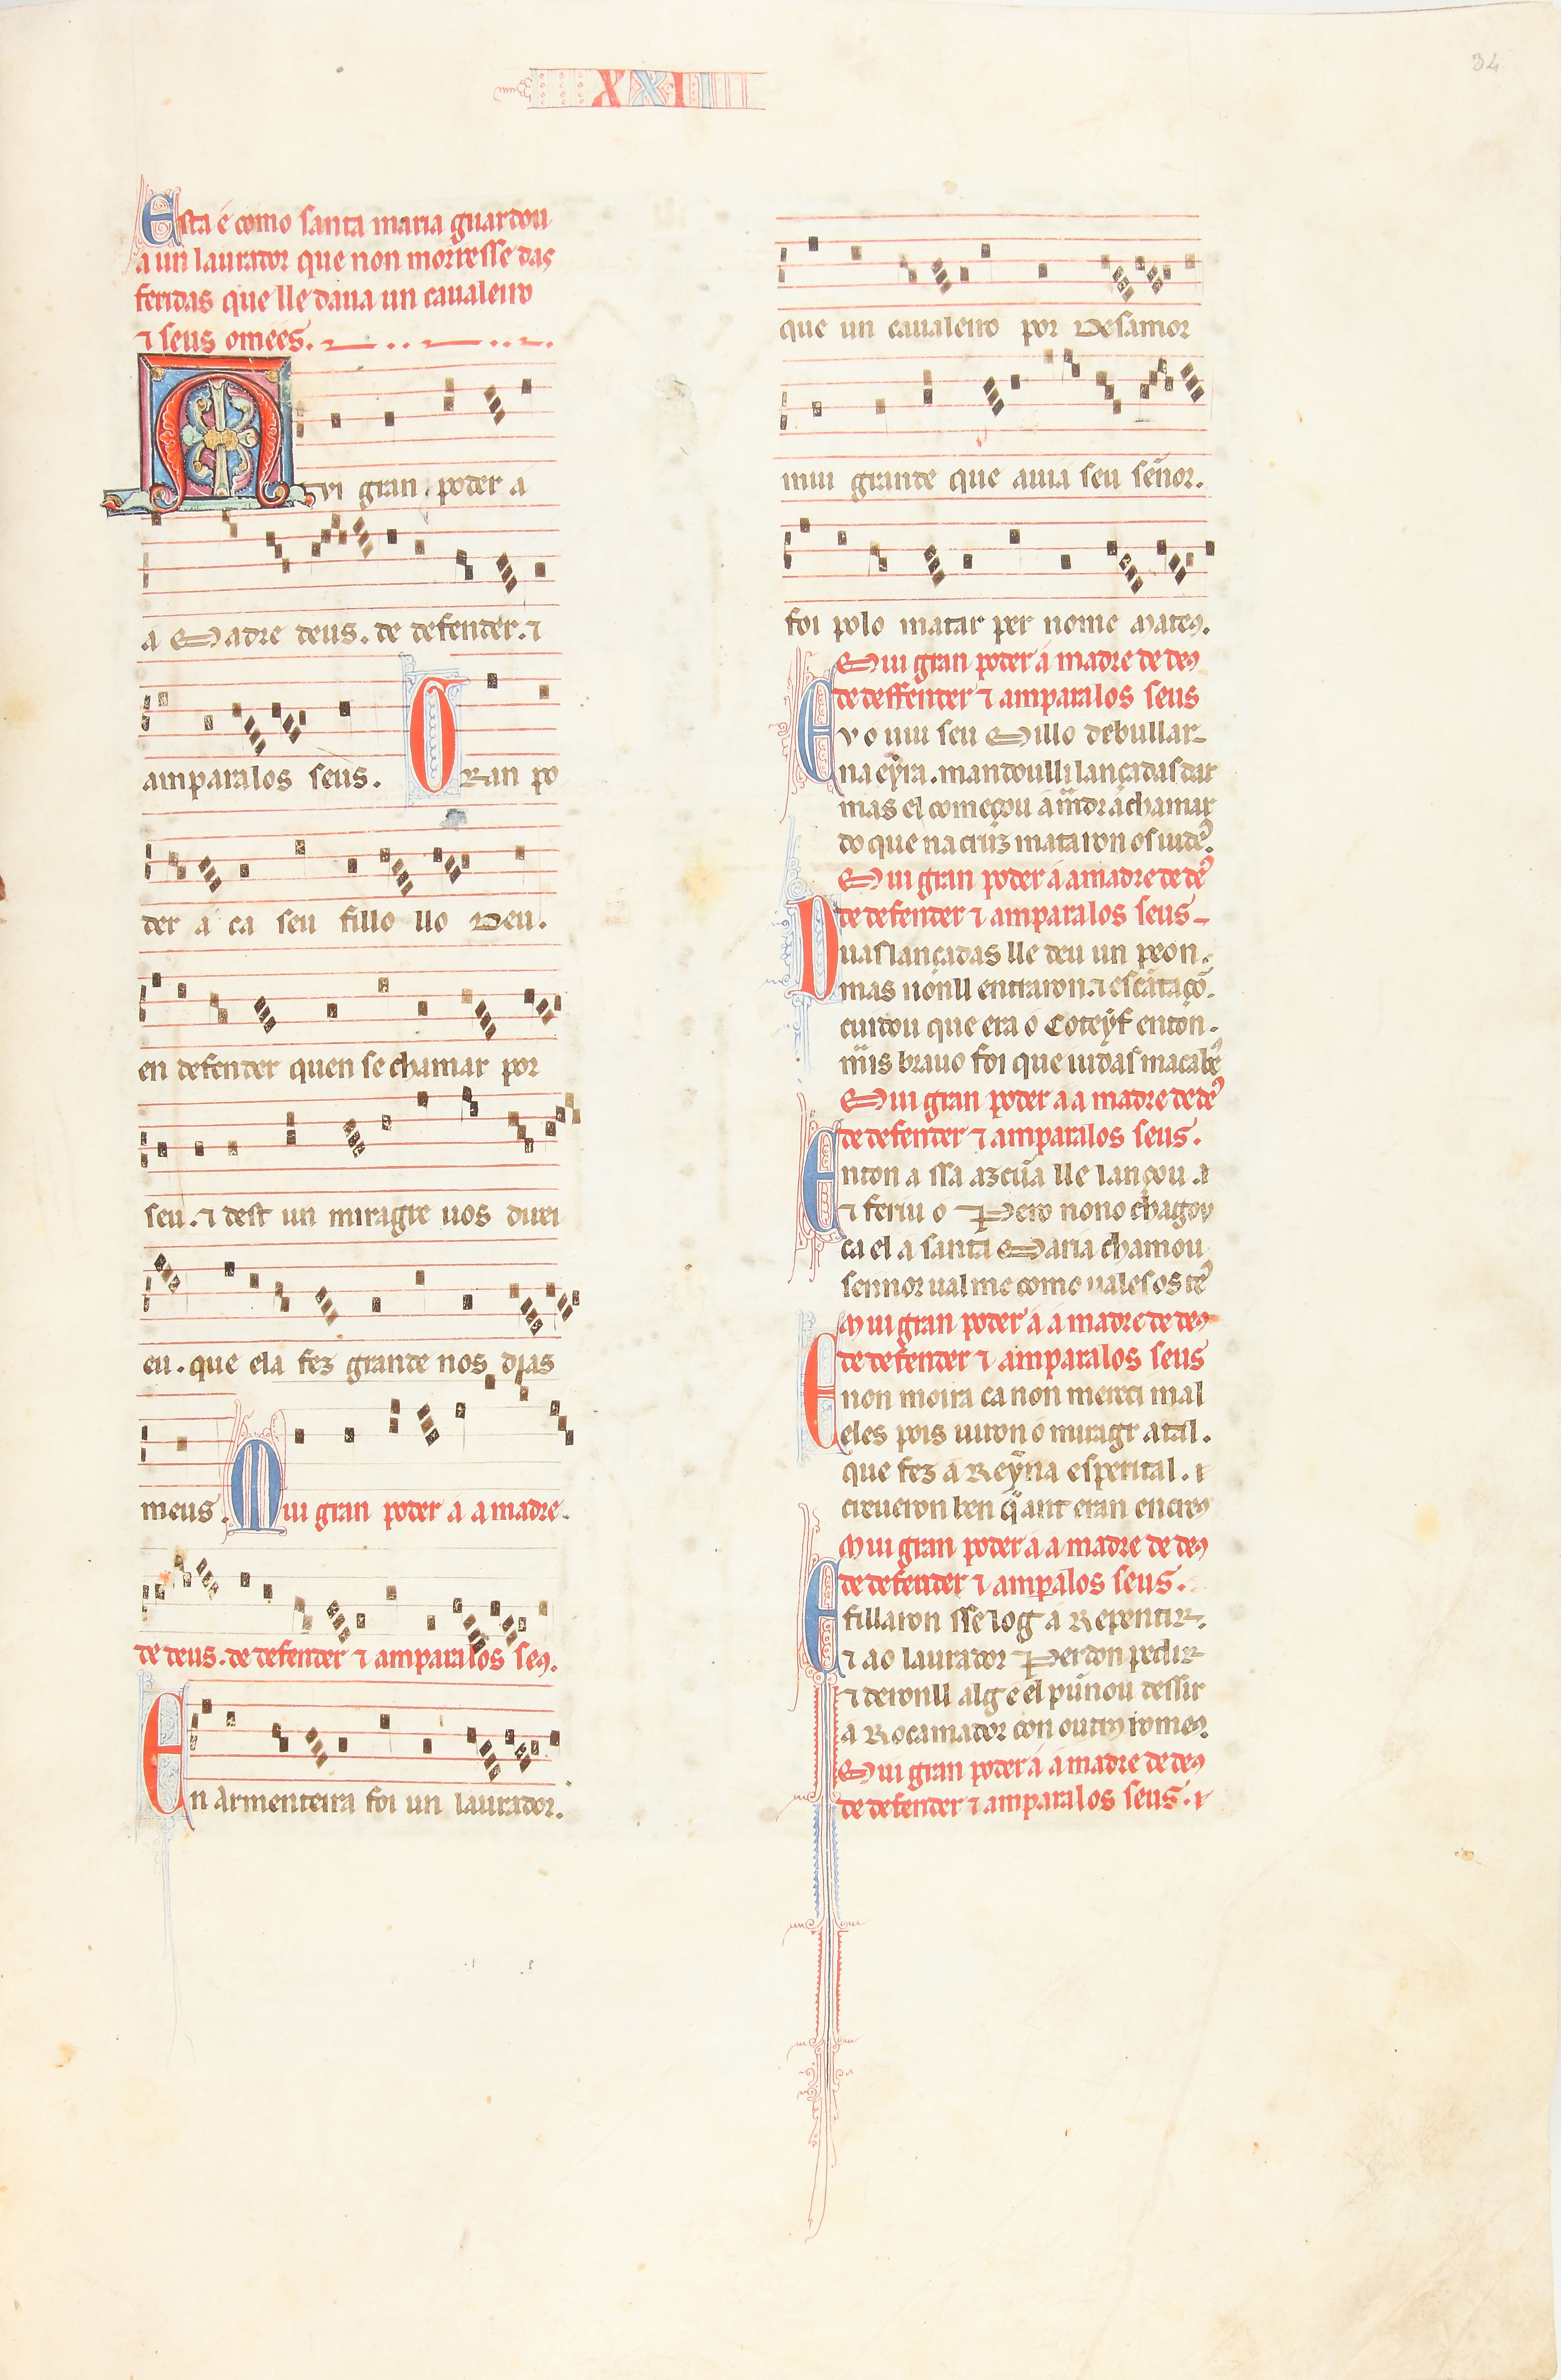 XXII
34
Esta é como santa maria guardou
a un laurador que non morresse das
feridas que lle daua un caualeiro
⁊ seus omées.
Mvi gran poder a
a Madre deus. de defender. ⁊
amparalos seus. Gran po
der á ca seu fillo llo Deu.
en defender quen se chamar por
seu. ⁊ dest un miragre uos direi
eu. que ela fez grande nos dias
meus. Mui gran poder a a madre
de deus. de defender ⁊ amparalos seꝰ.
En Armenteira foi un laurador.
que un caualeiro por Desamor
mui grande que auia seu señor.
foi polo matar per nome mateꝰ.
Mui gran poder á madre de deꝰ
de deffender ⁊ amparalos seus
E v o uiu seu Millo debullar
na eÿra. mandoulli lançadas dar
mas el começou á m̃dr̃ a chamar
do que na cruz mataron os iudeꝰ.
Mui gran poder á a madre de deꝰ
de defender ⁊ amparalos seus
Duas lançadas lle deu un peon.
mas nonll entraron. ⁊ escãtaçõ.
cuidou que era o Coteÿf enton.
mais brauo foi que iudas macabeꝰ
Mui gran poder a a madre de deꝰ
de defender ⁊ amparalos seus.
Enton a ssa azcũa lle lançou.
⁊ feriu o Pero nono chagou
ca el a santa Maria chamou
sennor ual me como uales os teꝰ
Mui gran poder á á madre de deꝰ
de defender ⁊ amparalos seus
E non moira ca non mereci mal
eles pois uiron o miragr atal.
que fez a Reÿna esperital.
creueron ben q̃ ant eran encreꝰ
Mui gran poder a a madre de deꝰ
de defender ⁊ amparalos seus.
E fillaron sse log a Repentir.
⁊ ao laurador Perdon pedir
⁊ deronll alg e el punnou dessir
a Rocamador con outrꝰ romeꝰ.
Mui gran poder á á madre de deꝰ
de defender ⁊ amparalos seus.